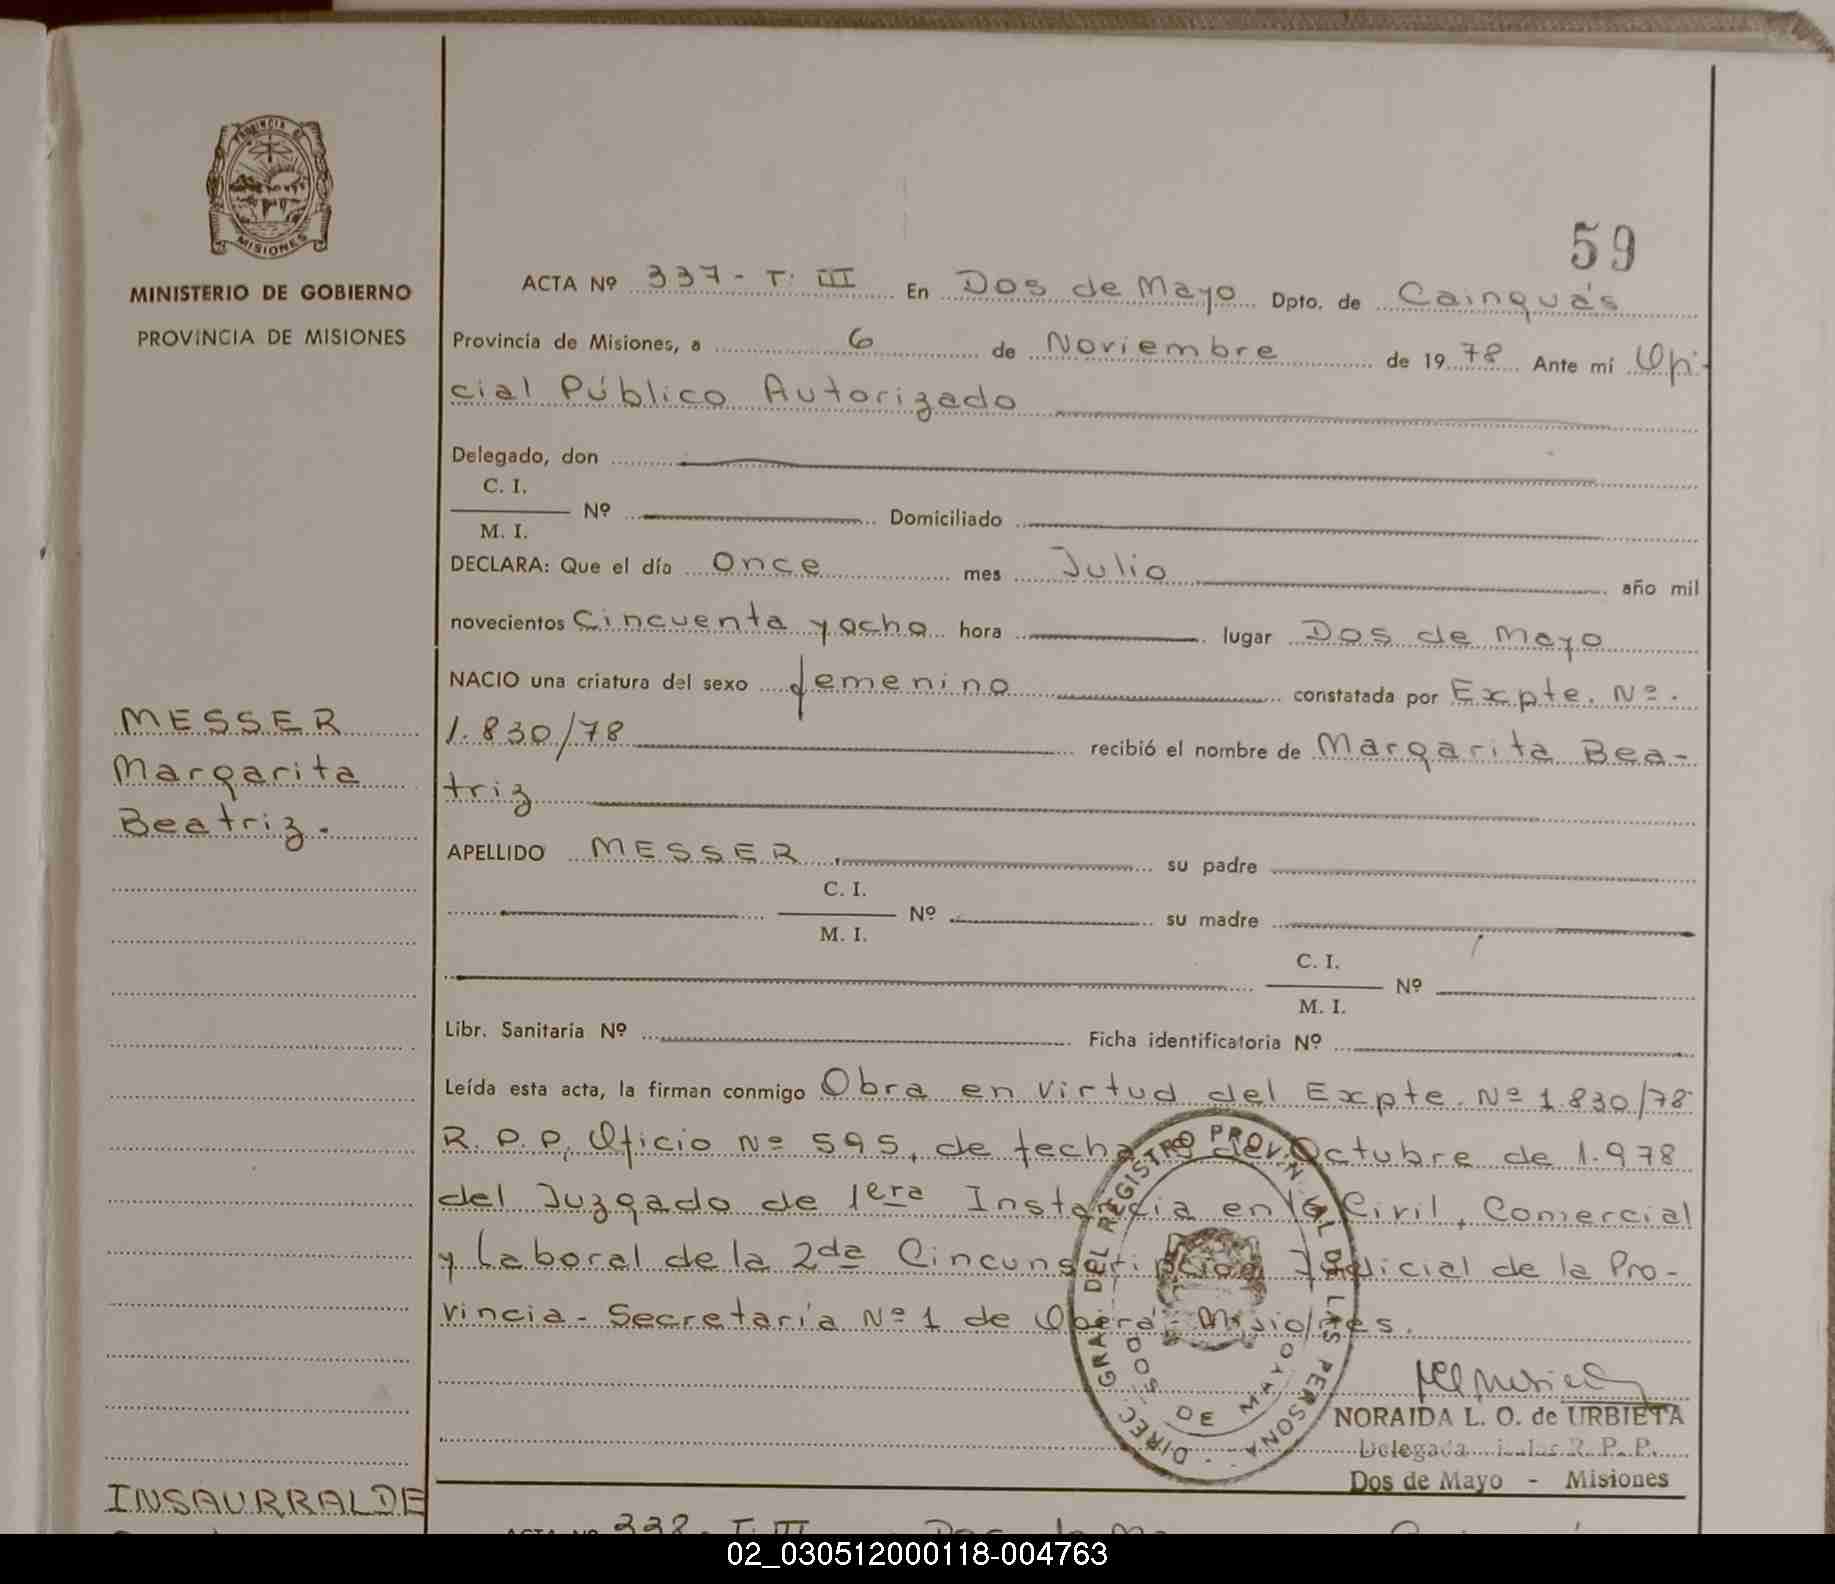 PROVINCIA DE
MISIONES
MINISTERIO DE GOBIERNO
PROVINCIA DE MISIONES
59
ACTA Nº 337 - T. III En Dos de Mayo Dpto. de Cainguás
Provincia de Misiones, a 6 de Noviembre de 1978 Ante mí Ofi-
cial Público Autorizado
Delegado, don
C. I.
M. I. Nº Domiciliado
DECLARA: Que el día Once mes Julio año mil
novecientos Cincuenta y ocho hora lugar Dos de Mayo
NACIO una criatura del sexo femenino constatada por Expte. Nº.
1.830/78 recibió el nombre de Margarita Bea-
triz
APELLIDO MESSER su padre
C. I.
M. I. Nº su madre
C. I.
M. I. Nº
Libr. Sanitaria Nº Ficha identificatoria Nº
Leída esta acta, la firman conmigo Obra en virtud del Expte. Nº 1.830/78
R. P. P, Oficio Nº 595, de fecha del Octubre de 1.978
del Juzgado de 1era Instancia en lo Civil, Comercial
y Laboral de la 2da Cincunscripción Judicial de la Pro-
vincia - Secretaría Nº 1 de Oberá - Misiones.
MESSER
Margarita
Beatriz.
DIREC. GRAL. DEL REGISTRO PROVINCIAL DE LAS PERSONAS
DOS DE MAYO
NORAIDA L. O. de URBIETA
Delegada R. P. P.
Dos de Mayo - Misiones
INSAURRALDE
ACTA Nº 338 - T. III
02_030512000118-004763